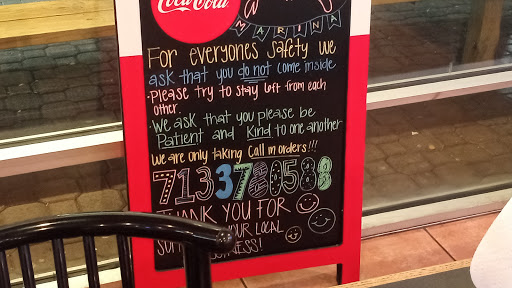 Coca-Cola
MARINA
For everyones safety we
ask that you do not come inside
·Please try to stay 6ft from each
other.
·We ask that you please be
Patient and Kind to one another
We are only taking Call in orders!!!
7133780588
THANK YOU FOR
YOUR LOCAL
BUSINESS!